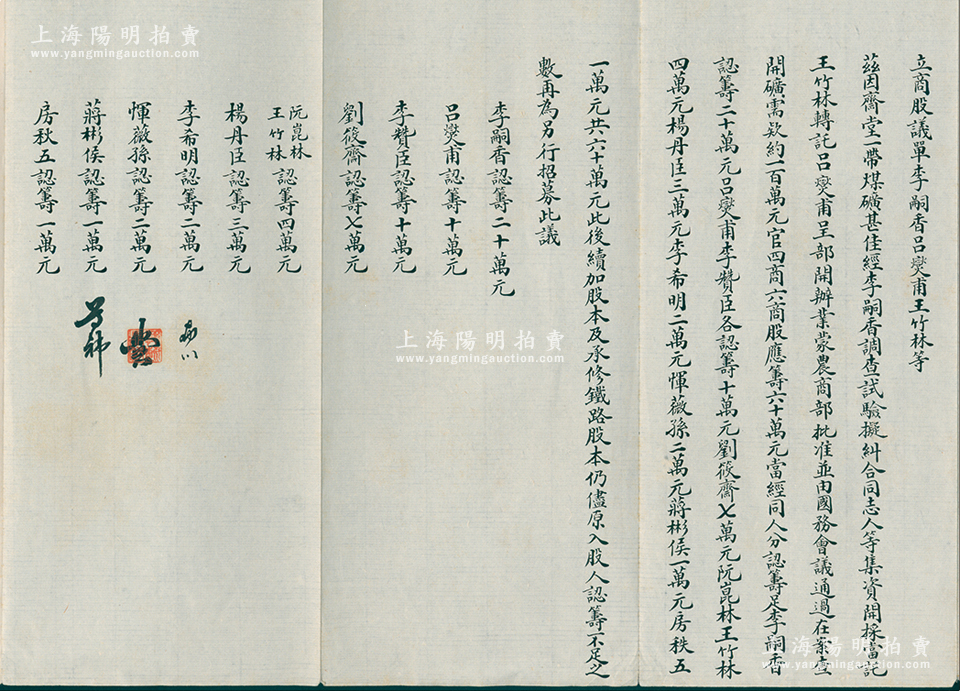 立商股議單李嗣香呂燮甫王竹林等
茲因齋堂一帶煤礦甚佳經李嗣香調查試驗擬糾合同志人等集資開採當託
王竹林轉託呂燮甫呈部開辦業蒙農商部批准並由國務會議通過在案查
開礦需欵約一百萬元官四商六商股應籌六十萬元當經同人分認籌足李嗣香
認籌二十萬元呂燮甫李贊臣各認籌十萬元劉筱齋七萬元阮崑林王竹林
四萬元楊丹臣三萬元李希明二萬元惲薇孫二萬元蔣彬侯一萬元房秩五
一萬元共六十萬元此後續加股本及承修鐵路股本仍儘原入股人認籌不足之
數再為另行招募此議
李嗣香認籌二十萬元
呂燮甫認籌十萬元
李贊臣認籌十萬元
劉筱齋認籌七萬元
阮崑林
王竹林認籌四萬元
楊丹臣認籌三萬元
李希明認籌二萬元
惲薇孫認籌二萬元
蔣彬侯認籌一萬元
房秋五認籌一萬元
上海陽明拍賣
www.yangmingauction.com
上海陽明拍賣
www.yangmingauction.com
上海陽明拍賣
www.yangmingauction.com